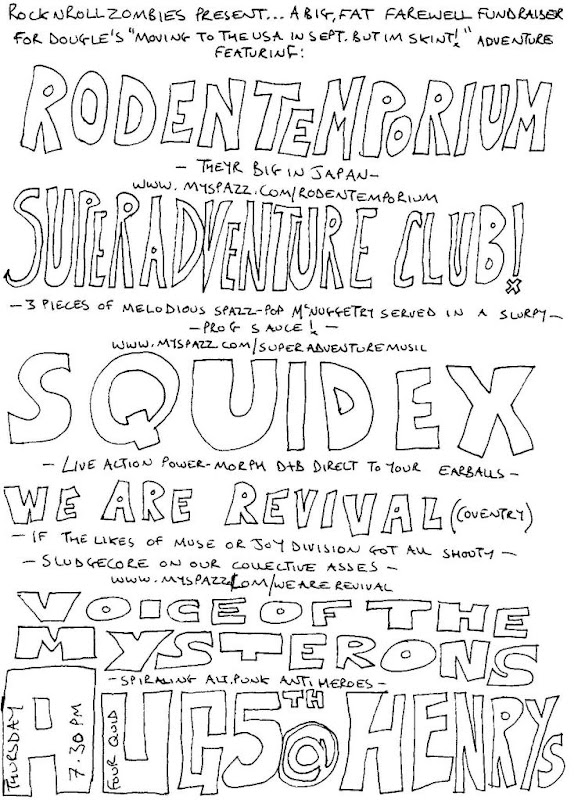 ROCKNROLLZOMBIES PRESENT... A BIG, FAT FAREWELL FUNDRAISER
FOR DOUGLE'S "MOVING TO THE USA IN SEPT. BUT IM SKINT!" ADVENTURE
FEATURING:
RODENTEMPORIUM
- THEYR BIG IN JAPAN -
WWW.MYSPAZZ.COM/RODENTEMPORIUM
SUPERADVENTURE CLUB!
- 3 PIECES OF MELODIOUS SPAZZ-POP McNUGGETRY SERVED IN A SLURPY -
- PROG SAUCE! -
WWW.MYSPAZZ.COM/SUPERADVENTUREMUSIC
SQUIDEX
- LIVE ACTION POWER-MORPH D+B DIRECT TO YOUR EARBALLS -
WE ARE REVIVAL (COVENTRY)
- IF THE LIKES OF MUSE OR JOY DIVISION GOT ALL SHOUTY -
- SLUDGECORE ON OUR COLLECTIVE ASSES -
WWW.MYSPAZZ.COM/WEAREREVIVAL
VOICE OF THE
MYSTERONS
- SPIRALING ALT.PUNK ANTI HEROES -
THURSDAY
7.30PM
FOUR QUID
AUG 5TH @ HENRYS